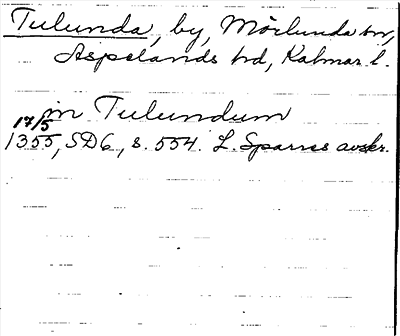 Tulunda, by, Mörlunda sn,
Aspelands hd, Kalmar l.
in Tulundum
17/5
1355, SD6, s. 554. L. Sparres avskr.